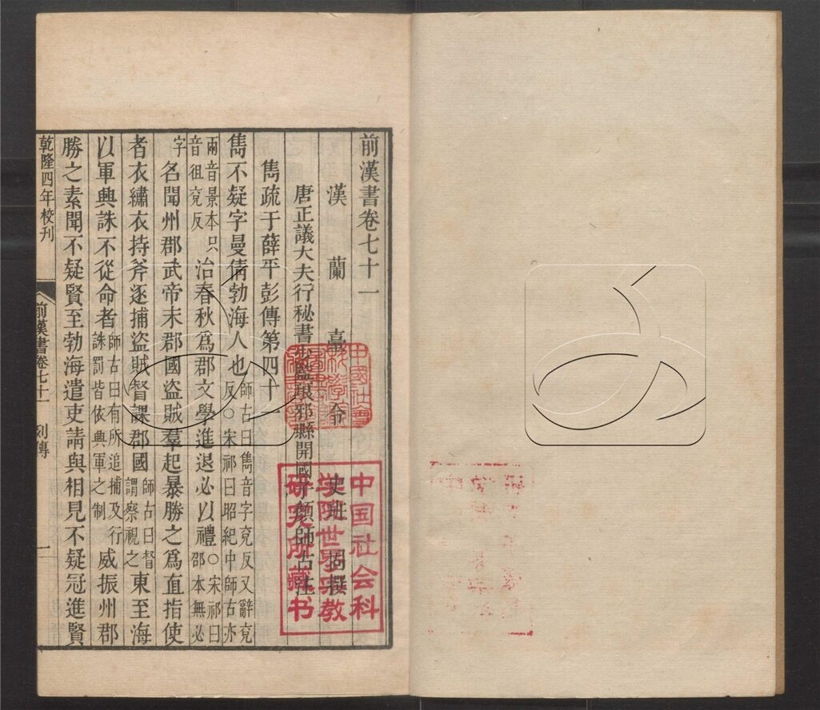 前漢書卷七十一
漢蘭臺令史班固撰
唐正議大夫行秘書少監琅邪縣開國子顏師古注
雋疏于薛平彭傳第四十一
雋不疑字曼倩勃海人也師古曰雋音字兗反又辭兗反○宋祁曰昭紀中師古亦
兩音景本只音徂兗反治春秋爲郡文學進退必以禮○宋祁曰邵本無必
字名聞州郡武帝末郡國盜賊羣起暴勝之爲直指使
者衣繡衣持斧逐捕盜賊督課郡國師古曰督謂察視之東至海
以軍興誅不從命者師古曰有所追捕及行誅罰皆依興軍之制威振州郡
勝之素聞不疑賢至勃海遣吏請與相見不疑冠進賢
乾隆四年校刊
前漢書卷七十一 列傳 一
中国社会科
学院世界宗教
研究所藏书
中國社會